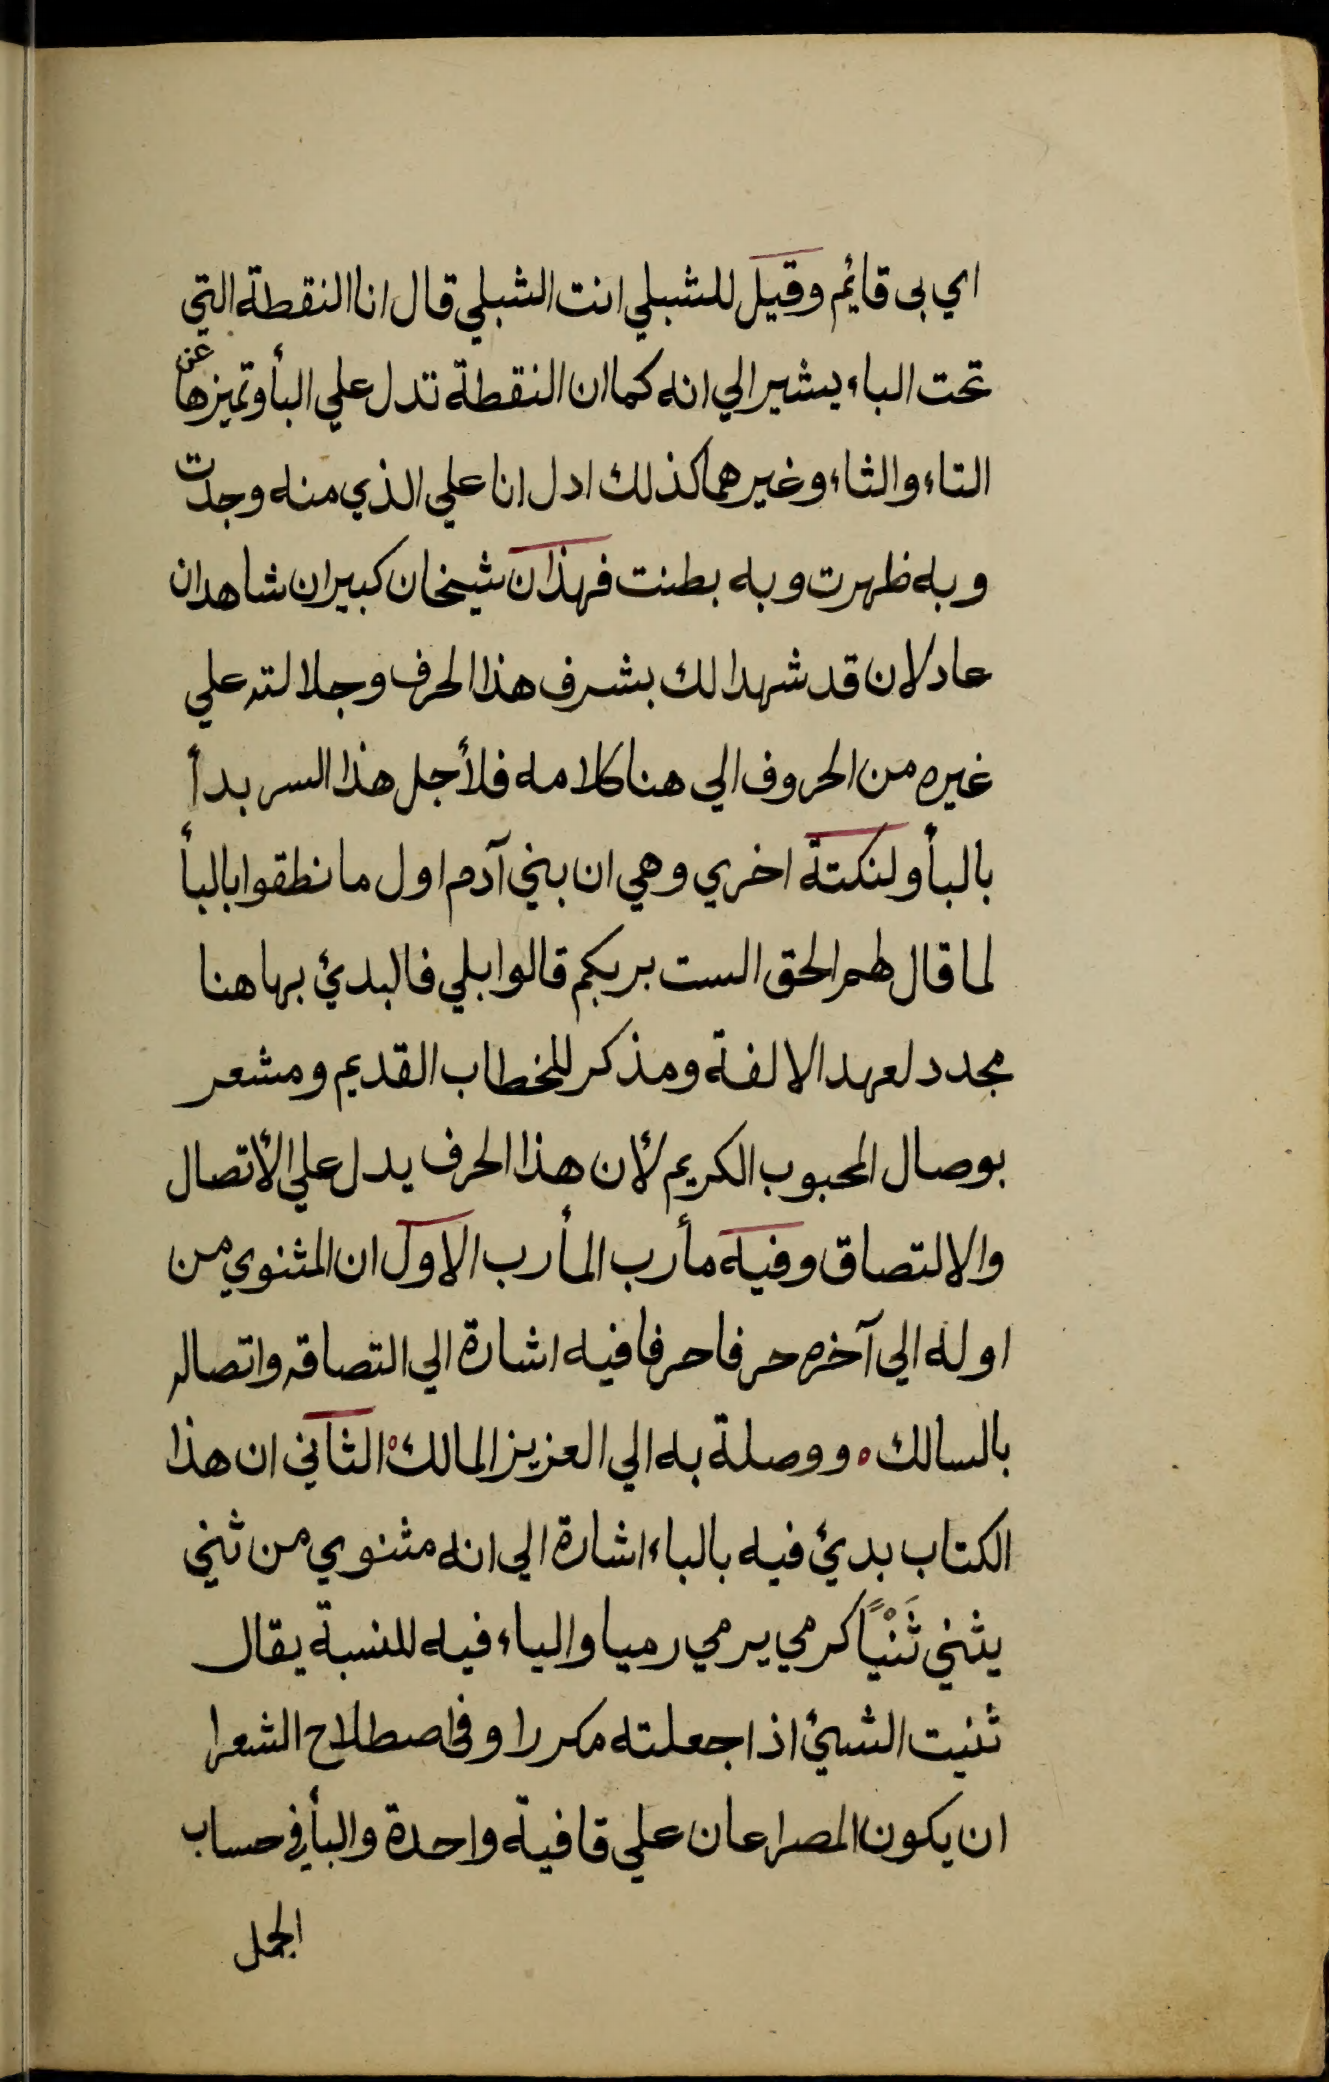 اي بى قائم وقيل للشبلي انت الشبلي قال انا النقطة التي
تحت الباء يشير الي انه كما ان النقطة تدل علي البأ وتميزها عن
التاء والثاء وغيرهما كذلك ادل انا علي الذي منه وجدت
وبه ظهرت وبه بطنت فهذان شيخان كبيران شاهدان
عادلان قد شهدا لك بشرف هذا الحرف وجلالته علي
غيره من الحروف الي هنا كلامه فلأجل هذا السر بدأ
بالبأ ولنكتة اخري وهي ان بني آدم اول ما نطقوا بالبأ
لما قال لهم الحق الست بربكم قالوا بلي فالبدئ بها هنا
مجدد لعهد الالفة ومذكر للخطاب القديم ومشعر
بوصال المحبوب الكريم لأن هذا الحرف يدل علي الأتصال
والالتصاق وفيه مأرب المأرب الاول ان المثنوي من
اوله الي آخره حرفا حرفا فيه اشارة الي التصاقه واتصاله
بالسالك ووصلة به الي العزيز المالك الثاني ان هذا
الكتاب بدئ فيه بالباء اشارة الي انه مثنوي من ثني
يثني ثَنْيًا كرمي يرمي رميا والياء فيه للنسبة يقال
ثنيت الشئ اذا جعلته مكررا وفى اصطلاح الشعرا
ان يكون المصراعان علي قافية واحدة والبأ في حساب
الجمل